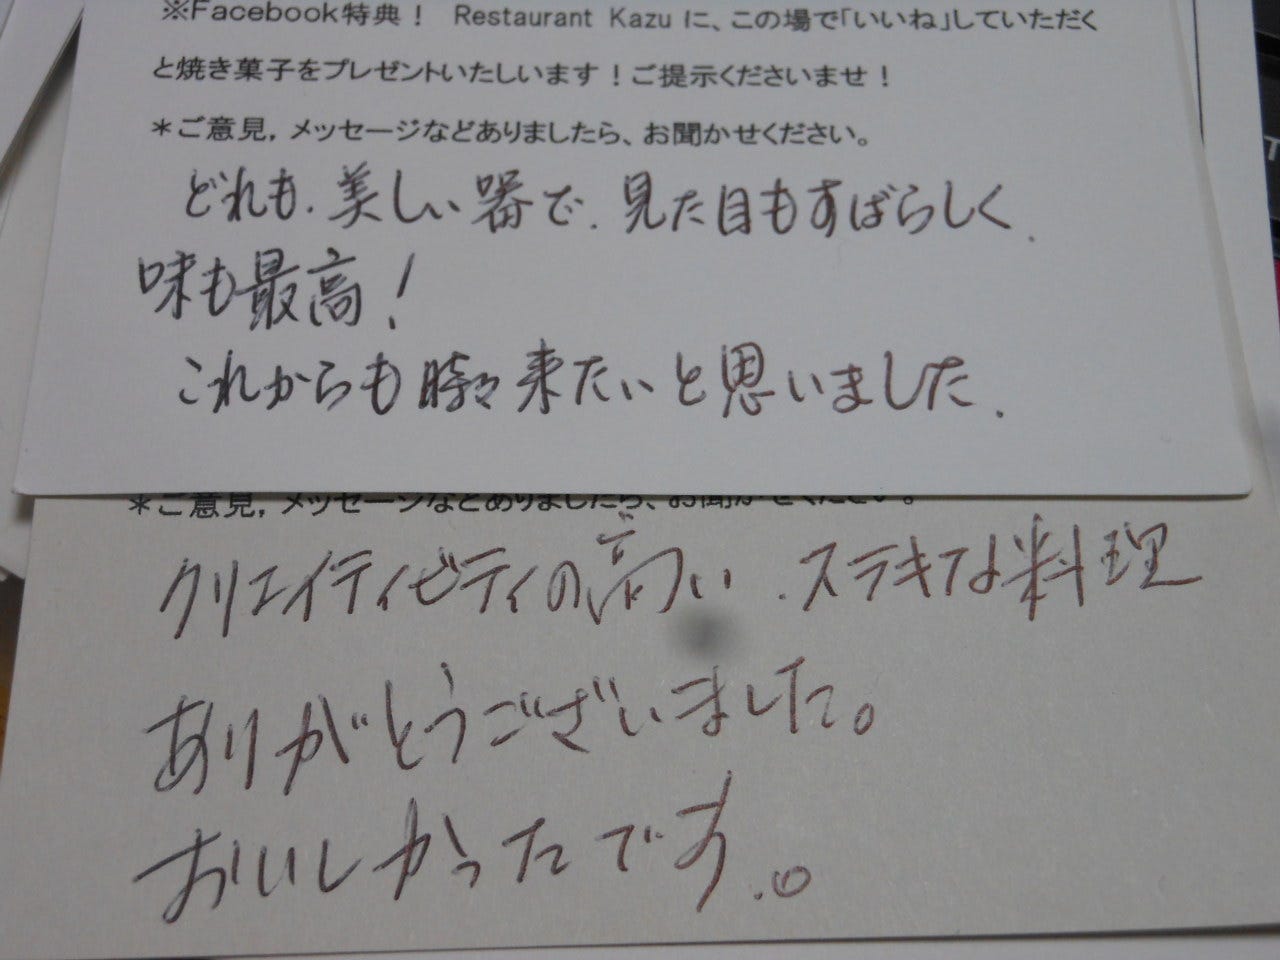 ※Facebook特典！ Restaurant Kazu に、この場で「いいね」していただく
と焼き菓子をプレゼントいたしいます！ご提示くださいませ！
＊ご意見，メッセージなどありましたら、お聞かせください。
どれも、美しい器で、見た目もすばらしく、
味も最高！
これからも時々来たいと思いました。
＊ご意見，メッセージなどありましたら、お聞かせください。
クリエイティビティの高い、ステキな料理
ありがとうございました。
おいしかったです。